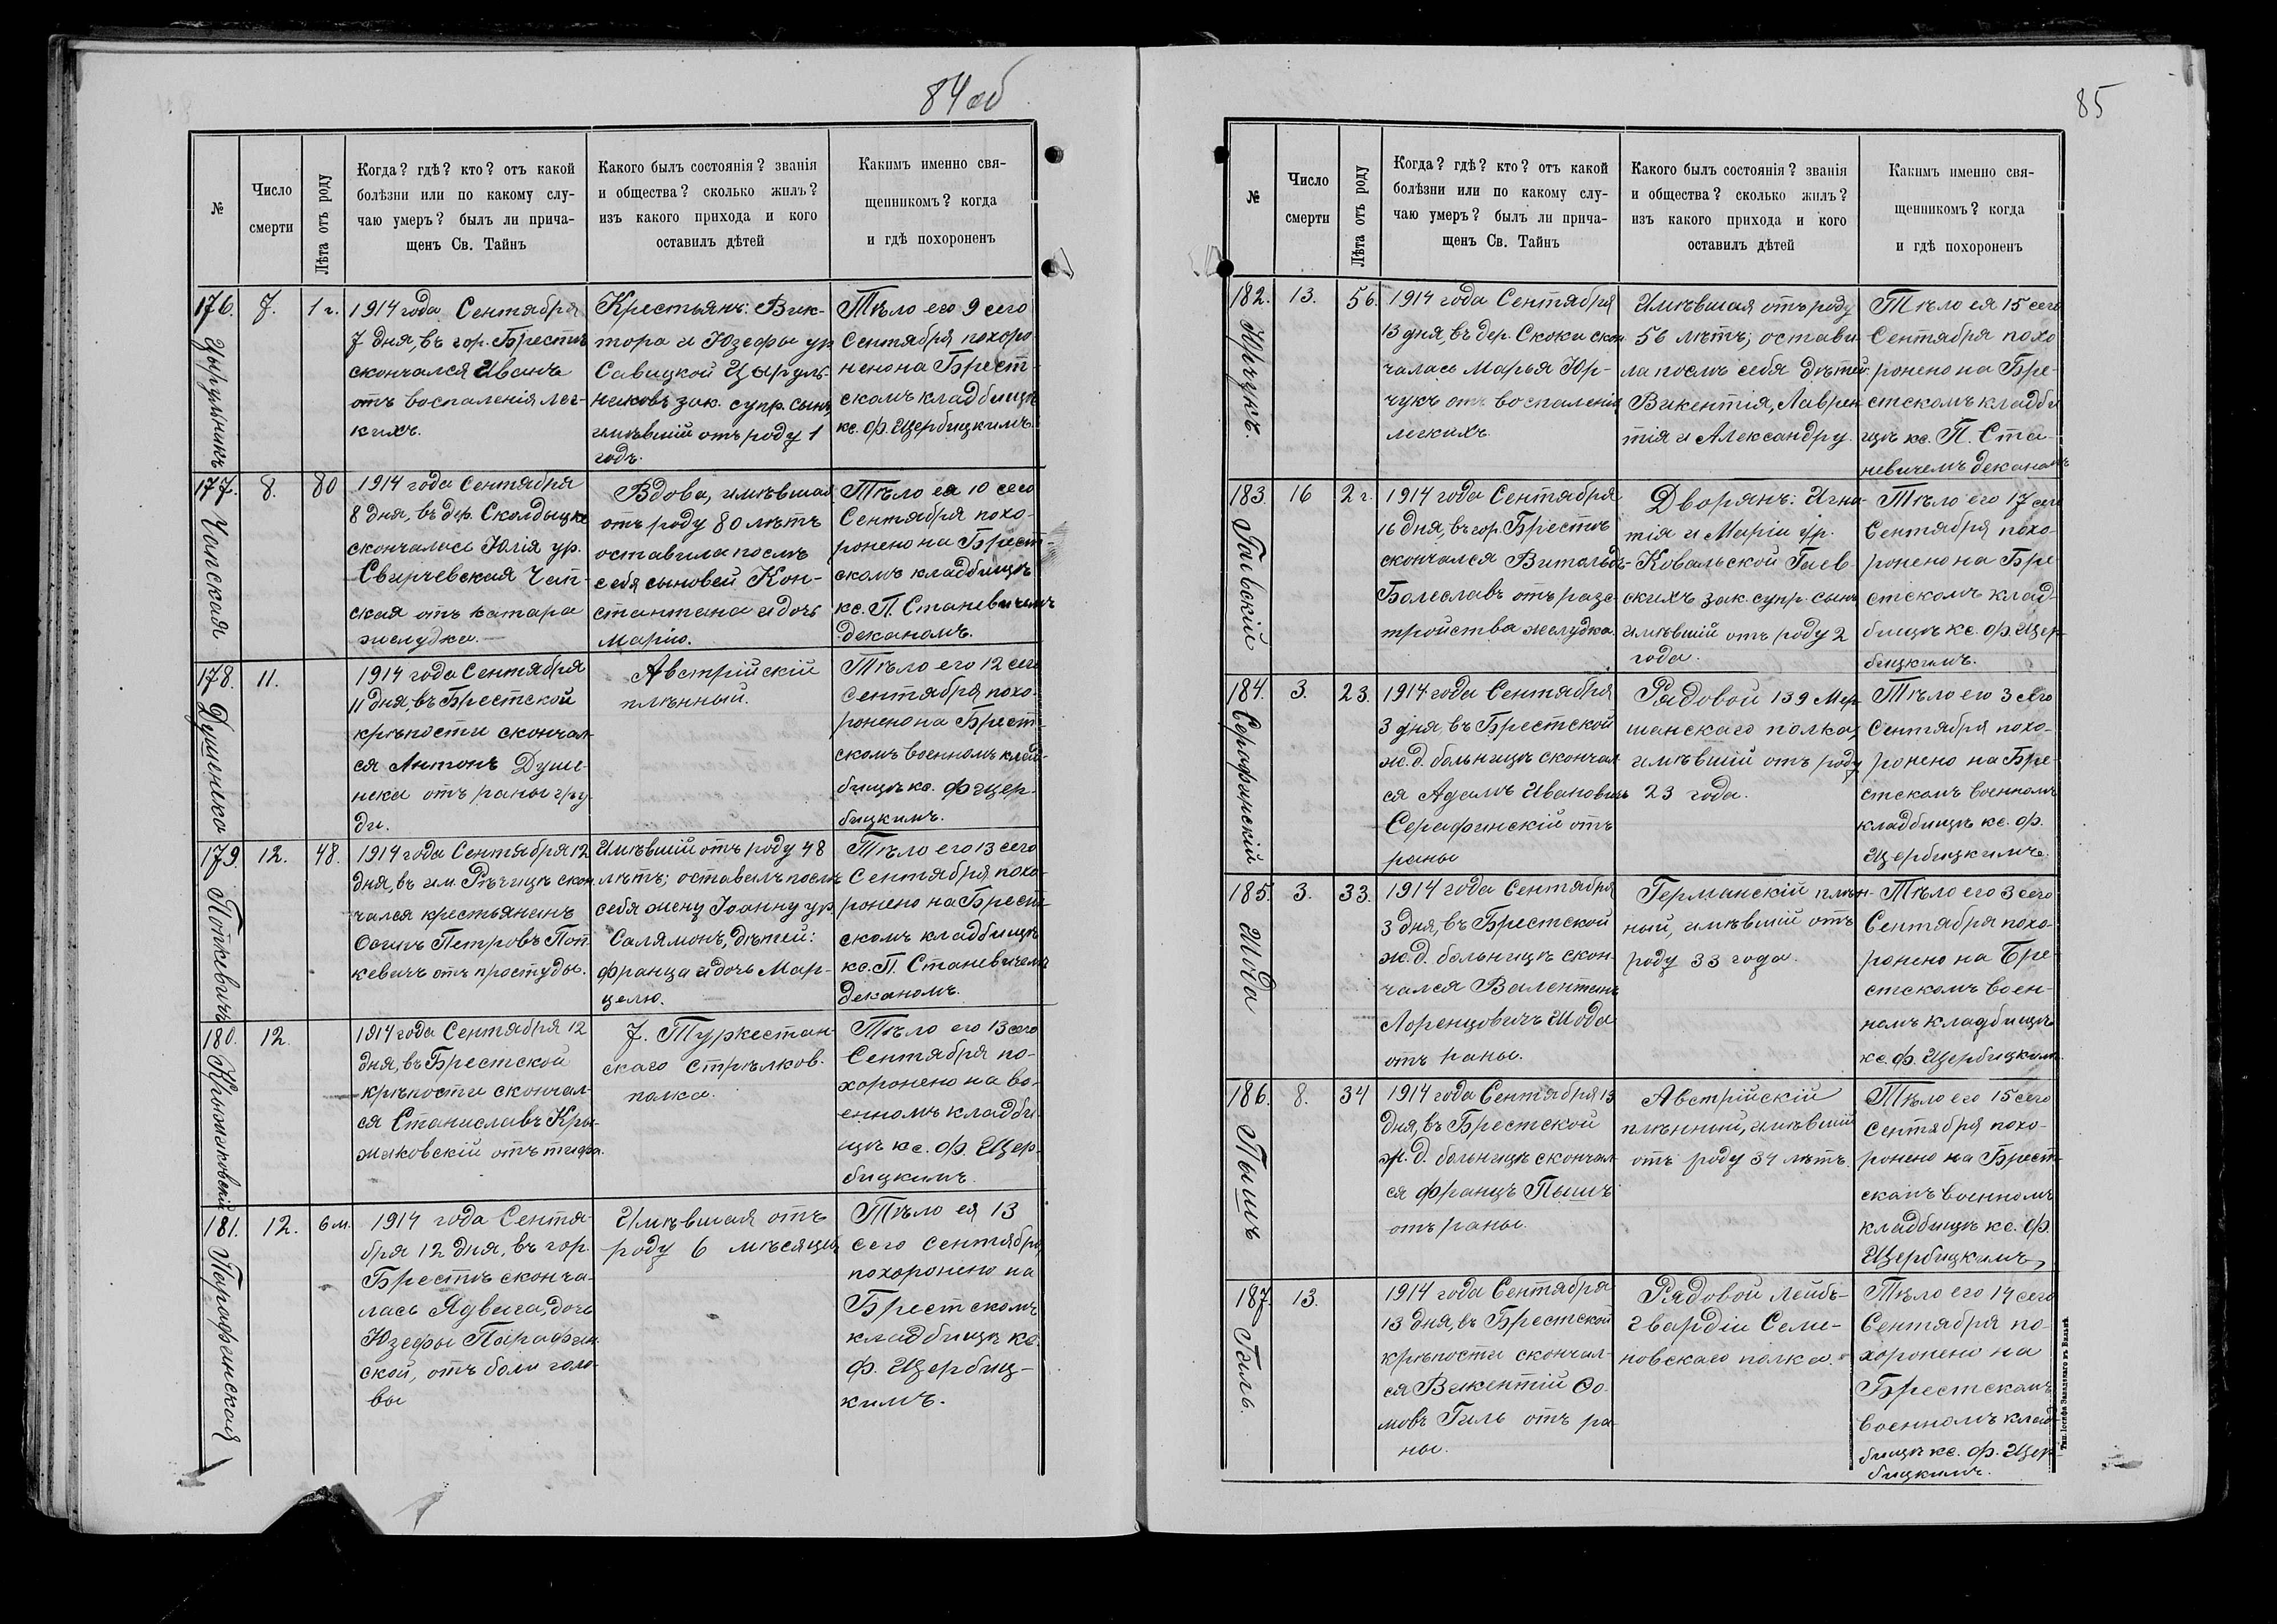 84 об
№
Число
смерти
Лѣта отъ роду
Когда? гдѣ? кто? отъ какой
болѣзни или по какому слу-
чаю умеръ? былъ ли прича-
щенъ Св. Тайнъ
Какого былъ состоянія? званія
и общества? сколько жилъ?
изъ какого прихода и кого
оставилъ дѣтей
Какимъ именно свя-
щенникомъ? когда
и гдѣ похороненъ
176.
Цырульникъ
7.
1 г.
1914 года Сентября
7 дня, въ гор. Брестѣ
скончался Иванъ
отъ воспаленія лег-
кихъ.
Крестьянъ: Вик-
тора и Юзефы ур.
Савицкой Цыруль-
никовъ зак. супр. сынъ
имѣвшій отъ роду 1
годъ.
Тѣло его 9 сего
Сентября похоро
нено на Брест-
скомъ кладбищѣ
кс. Ф. Щербицкимъ.
177.
Чапская
8.
80
1914 года Сентября
8 дня, въ дер. Сколдычке
скончалась Юлія ур.
Свирчевская Чап-
ская отъ катара
желудка.
Вдова, имѣвшая
отъ роду 80 лѣтъ
оставила послѣ
себя сыновей Кон-
стантина и дочь
Марію.
Тѣло ея 10 сего
Сентября похо-
ронено на Брест-
скомъ кладбищѣ
кс. П. Станевичемъ
деканомъ.
178.
Душенько
11.
1914 года Сентября
11 дня, въ Брестской
крѣпости скончал-
ся Антонъ Душе-
нька отъ раны гру-
ди.
Австрійскій
плѣнный.
Тѣло его 12 сего
Сентября похо-
ронено на Брест-
скомъ военномъ клад-
бищѣ кс. Ф Щер-
бицкимъ.
179
Попкевичъ
12.
48.
1914 года Сентября 12
дня, въ им. Рѣчицѣ скон
чался крестьянинъ
Осипъ Петровъ Поп
кевичъ отъ простуды.
Имѣвшій отъ роду 48
лѣтъ; оставилъ послѣ
себя жену Іоанну ур.
Салямонъ, дѣтей:
Франца и дочь Мар-
целю.
Тѣло его 13 сего
Сентября похо-
ронено на Брест-
скомъ кладбищѣ
кс. П. Станевичемъ
деканомъ.
180.
Крыжковскій
12.
1914 года Сентября 12
дня, въ Брестской
крѣпости скончал-
ся Станиславъ Кры-
жковскій отъ тифа.
7. Туркестан-
скаго стрѣлков.
полка.
Тѣло его 13 сего
Сентября по-
хоронено на во-
енномъ кладби
щѣ кс. Ф. Щер-
бицкимъ.
181.
Парафинская
12.
6 м.
1914 года Сентя-
бря 12 дня, въ гор.
Брестѣ сконча-
лась Ядвига, дочь
Юзефы Парафин
ской, отъ боли голо-
вы
Имѣвшая отъ
роду 6 мѣсяцевъ
Тѣло ея 13
сего Сентября
похоронено на
Брестскомъ
кладбищѣ кс.
Ф. Щербиц-
кимъ.
85
№
Число
смерти
Лѣта отъ роду
Когда? гдѣ? кто? отъ какой
болѣзни или по какому слу-
чаю умеръ? былъ ли прича-
щенъ Св. Тайнъ
Какого былъ состоянія? званія
и общества? сколько жилъ?
изъ какого прихода и кого
оставилъ дѣтей
Какимъ именно свя-
щенникомъ? когда
и гдѣ похороненъ
182.
Юрчукъ.
13.
56.
1914 года Сентября
13 дня въ дер. Скоки скон
чалась Марья Юр-
чукъ отъ воспаленія
легкихъ.
Имѣвшая отъ роду
56 лѣтъ; остави-
ла послѣ себя дѣтей:
Викентія, Лаврен
тія и Александру.
Тѣло ея 15 сего
Сентября похо
ронено на Бре-
стскомъ кладби
щѣ кс. П. Ста-
невичемъ деканомъ
183.
Гаевскій
16
2 г.
1914 года Сентября
16 дня, въ гор. Брестѣ
скончался Витольдъ-
Болеславъ отъ разс-
тройства желудка.
Дворянъ: Игна
тія и Маріи ур.
Ковальской Гаев-
скихъ зак. супр. сынъ
имѣвшій отъ роду 2
года.
Тѣло его 17 сего
Сентября похо-
ронено на Бре
стскомъ клад-
бищѣ кс. Ф. Щер-
бицкимъ.
184.
Серафинскій
3.
23.
1914 года Сентября
3 дня, въ Брестской
ж. д. больницѣ скончал
ся Адамъ Ивановичъ
Серафинскій отъ
раны
Рядовой 139 Мор
шанскаго полка,
имѣвшій отъ роду
23 года.
Тѣло его 3 сего
Сентября похо-
ронено на Бре-
стскомъ военномъ
кладбищѣ кс. Ф.
Щербицкимъ.
185.
Шода
3.
33.
1914 года Сентября
3 дня, въ Брестской
ж. д. больницѣ скон-
чался Валентинъ
Лоренцовичъ Шода
отъ раны.
Германскій плѣн-
ный, имѣвшій отъ
роду 33 года.
Тѣло его 3 сего
Сентября похо-
ронено на Бре-
стскомъ воен-
номъ кладбищѣ
кс. Ф. Щербицкимъ.
186.
Пышъ
8.
34
1914 года Сентября 13
дня, въ Брестской
ж. д. больницѣ скончал
ся Францъ Пышъ
отъ раны.
Австрійскій
плѣнный, имѣвшій
отъ роду 34 лѣтъ.
Тѣло его 15 сего
Сентября похо-
ронено на Брест-
скомъ военномъ
кладбищѣ кс. Ф.
Щербицкимъ,
187.
Гиль.
13.
1914 года Сентября
13 дня, въ Брестской
крѣпости скончал-
ся Викентій Фо-
мовъ Гиль отъ ра
ны.
Рядовой лейбъ-
гвардіи Семе-
новскаго полка.
Тѣло его 14 сего
Сентября по-
хоронено на
Брестскомъ
военномъ клад-
бищѣ кс. Ф. Щер-
бицкимъ.
Тип. Іосифа Завадзкаго въ Вильнѣ.